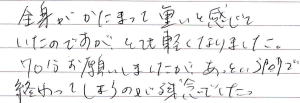 全身がかたまって重いと感じて
いたのですが とても軽くなりました。
70分お願いしましたが、あっという間で
終わってしまうのが残念でした。